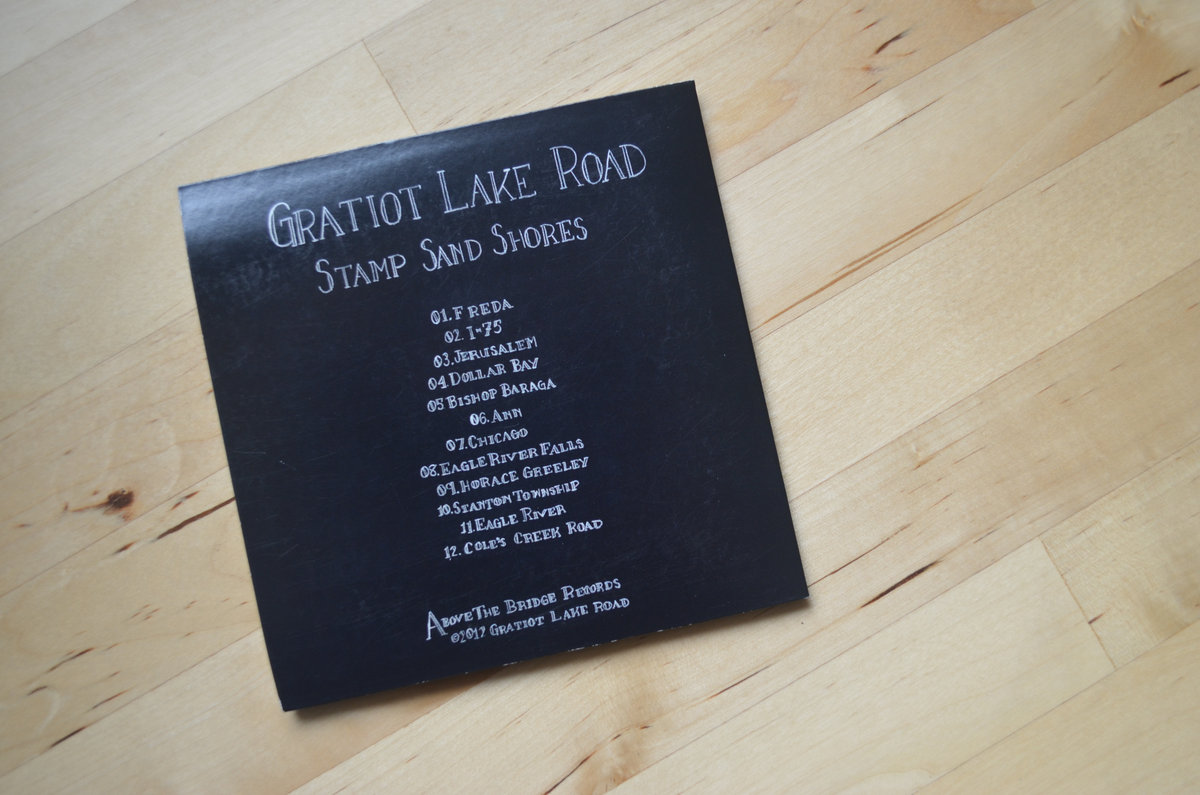 Gratiot Lake Road
Stamp Sand Shores
01. Freda
02. I-75
03. Jerusalem
04. Dollar Bay
05. Bishop Baraga
06. Ann
07. Chicago
08. Eagle River Falls
09. Horace Greeley
10. Stanton Township
11. Eagle River
12. Cole's Creek Road
Above The Bridge Records
©2012 Gratiot Lake Road